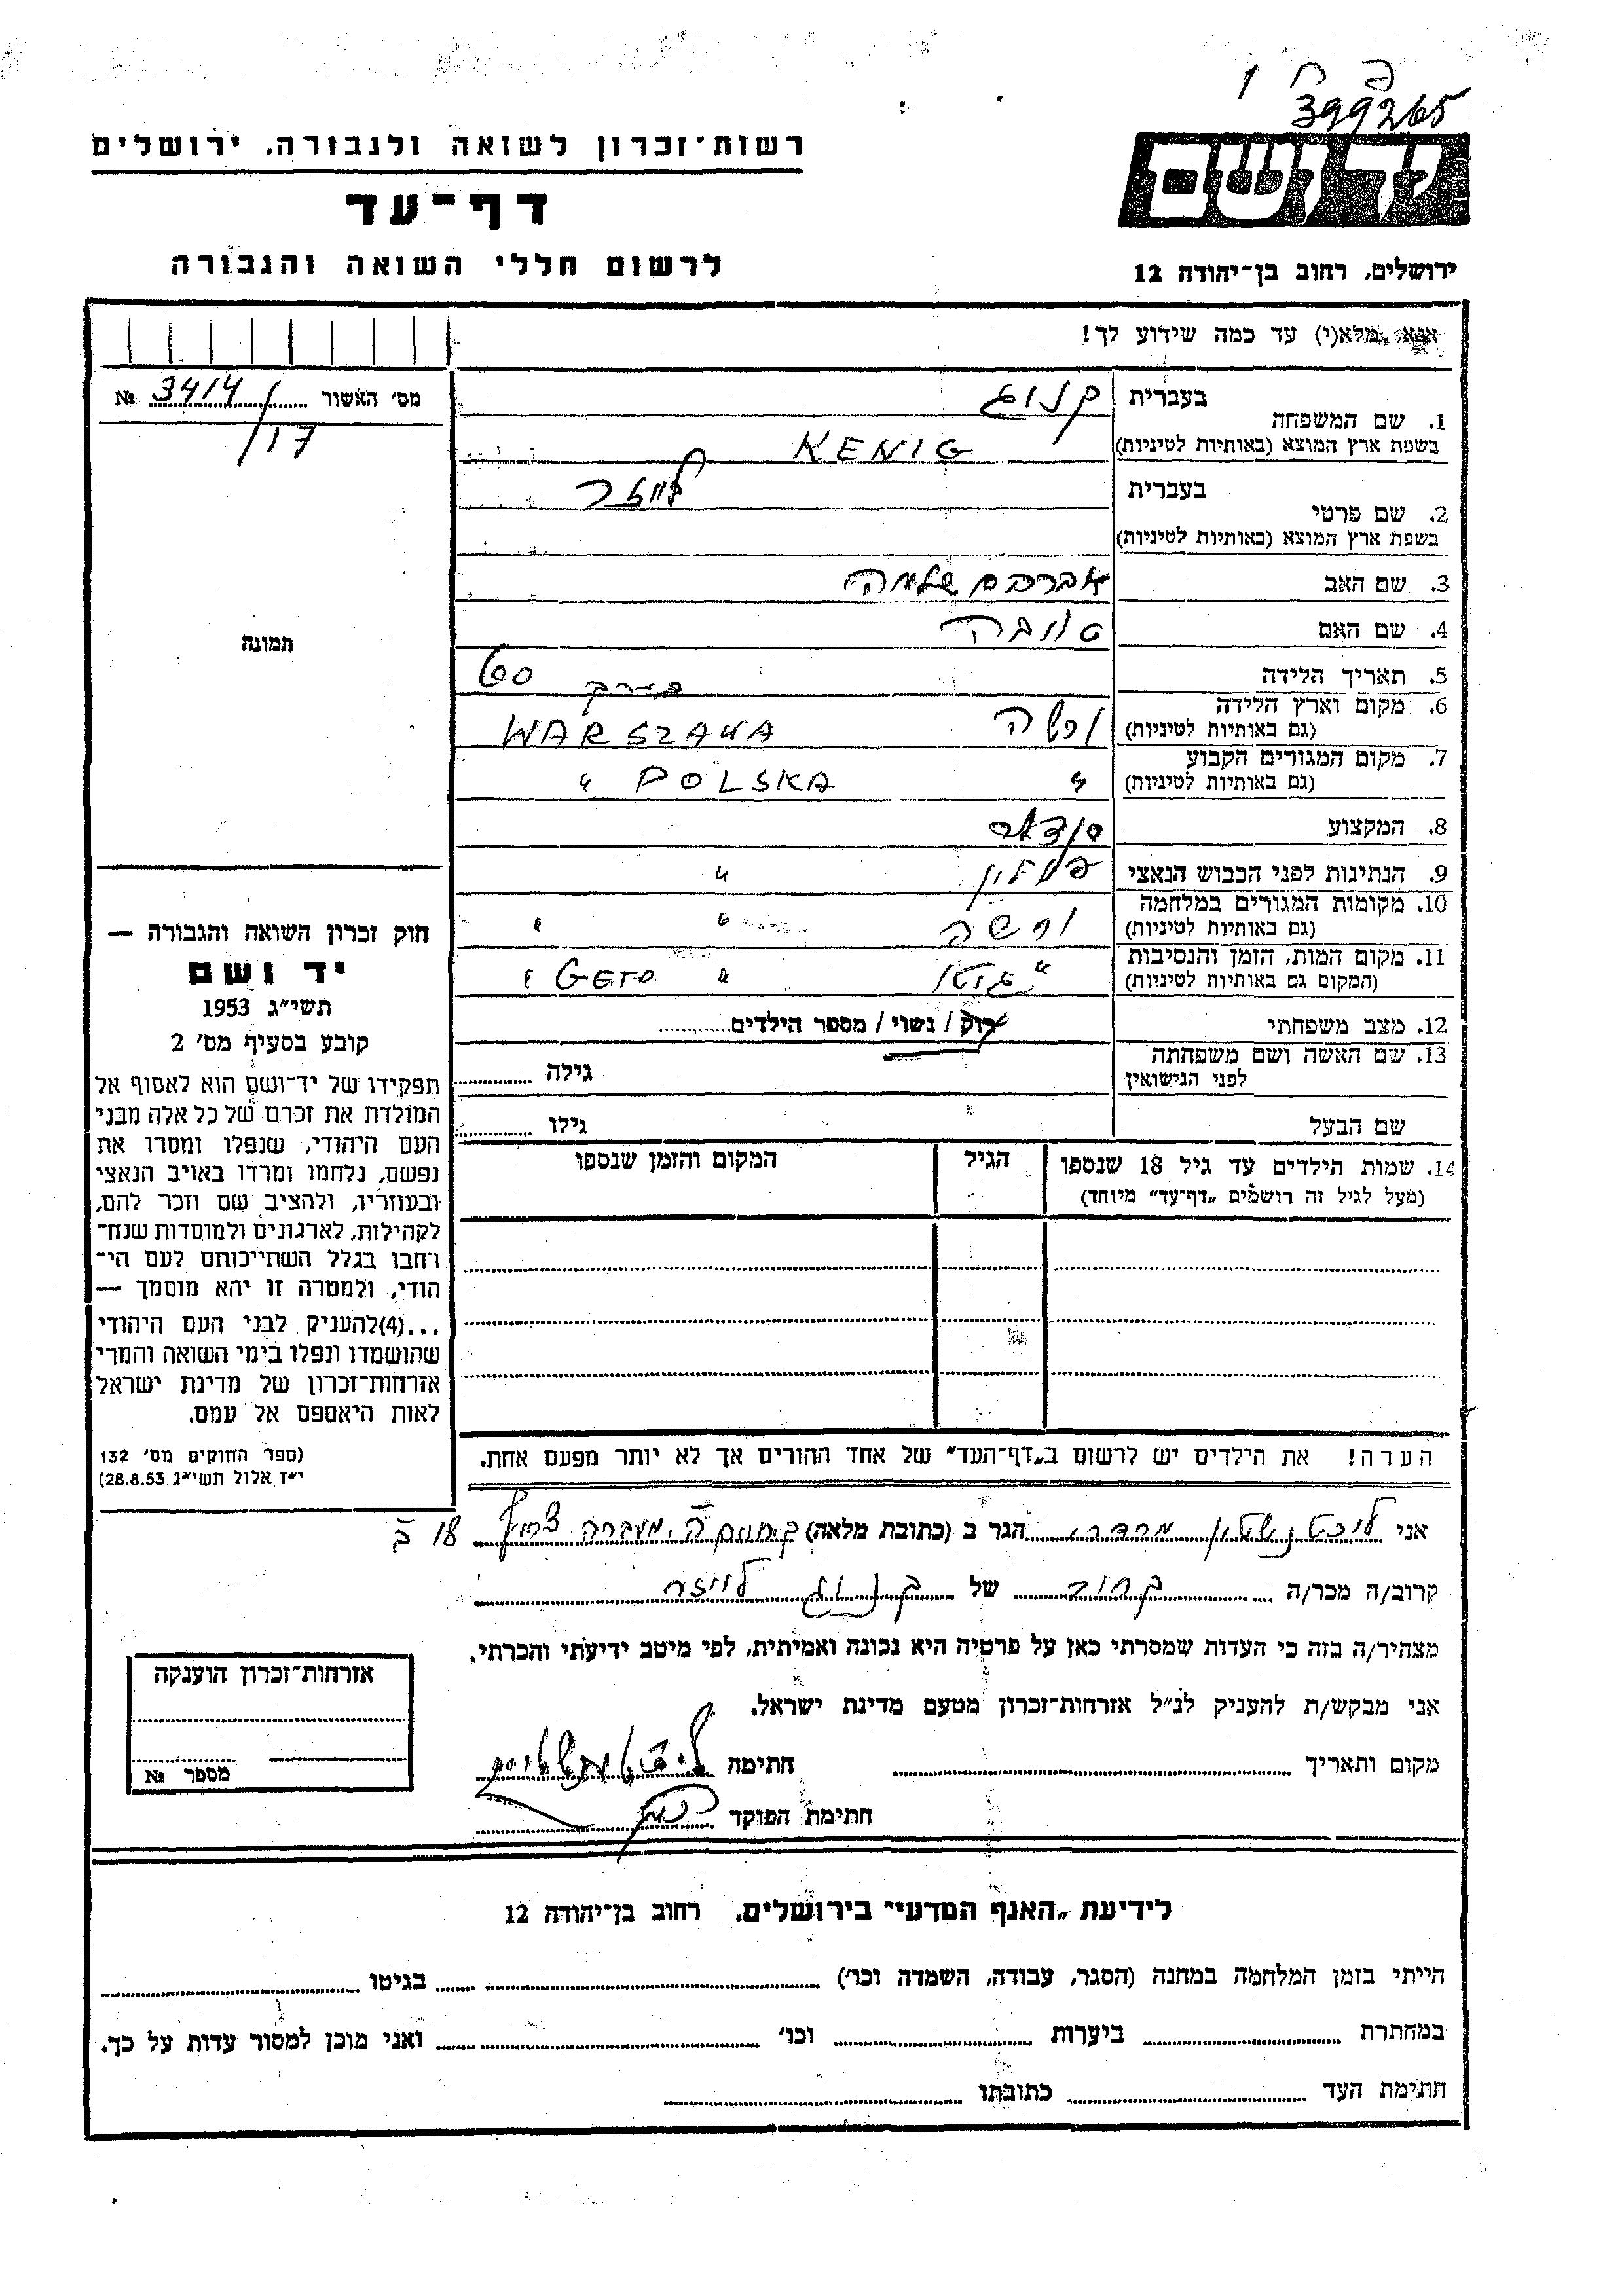 399265
יד ושם
ירושלים, רחוב בן־יהודה 12
רשות־זכרון לשואה ולגבורה, ירושלים
דף־עד
לרשום חללי השואה והגבורה
אנא, מלא(י) עד כמה שידוע לך!
מס׳ האשור 3414 №
/17
תמונה
1. שם המשפחה
בעברית קנוג
בשפת ארץ המוצא (באותיות לטיניות) KENIG
2. שם פרטי
בעברית לייזר
בשפת ארץ המוצא (באותיות לטיניות)
3. שם האב אברהם שלמה
4. שם האם טובה
5. תאריך הלידה בערך 60
6. מקום וארץ הלידה ורשה WARSZAWA
(גם באותיות לטיניות)
7. מקום המגורים הקבוע " POLSKA "
(גם באותיות לטיניות)
8. המקצוע סנדלר
9. הנתינות לפני הכבוש הנאצי פולין "
10. מקומות המגורים במלחמה ורשה " "
(גם באותיות לטיניות)
11. מקום המות, הזמן והנסיבות " גטו " GETO "
(המקום גם באותיות לטיניות)
12. מצב משפחתי רוק / נשוי / מספר הילדים
13. שם האשה ושם משפחתה גילה
לפני הנישואין
שם הבעל גילו
14. שמות הילדים עד גיל 18 שנספו הגיל המקום והזמן שנספו
(מעל לגיל זה רושמים „דף־עד״ מיוחד)
הערה! את הילדים יש לרשום ב„דף־העד״ של אחד ההורים אך לא יותר מפעם אחת.
חוק זכרון השואה והגבורה —
יד ושם
תשי״ג 1953
קובע בסעיף מס׳ 2
תפקידו של יד־ושם הוא לאסוף אל
המולדת את זכרם של כל אלה מבני
העם היהודי, שנפלו ומסרו את
נפשם, נלחמו ומרדו באויב הנאצי
ובעוזריו, ולהציב שם וזכר להם,
לקהילות, לארגונים ולמוסדות שנח־
רחבו בגלל השתייכותם לעם הי־
הודי, ולמטרה זו יהא מוסמך —
...(4)להעניק לבני העם היהודי
שהושמדו ונפלו בימי השואה והמרי
אזרחות־זכרון של מדינת ישראל
לאות היאספם אל עמם.
(ספר החוקים מס׳ 132
י״ז אלול תשי״ג 28.8.53)
אני ליכטנשטין מרדכי הגר ב (כתובת מלאה) מעברה צריף 18 ב
קרוב/ה מכר/ה קרוב של קנוג לייזר
מצהיר/ה בזה כי העדות שמסרתי כאן על פרטיה היא נכונה ואמיתית, לפי מיטב ידיעתי והכרתי.
אני מבקש/ת להעניק לנ״ל אזרחות־זכרון מטעם מדינת ישראל.
מקום ותאריך חתימה ליכטנשטיין
חתימת הפוקד
אזרחות־זכרון הוענקה
מספר №
לידיעת „האגף המדעי״ בירושלים, רחוב בן־יהודה 12
הייתי בזמן המלחמה במחנה (הסגר, עבודה, השמדה וכו׳) בגיטו
במחתרת ביערות וכו׳ ואני מוכן למסור עדות על כך.
חתימת העד כתובתו